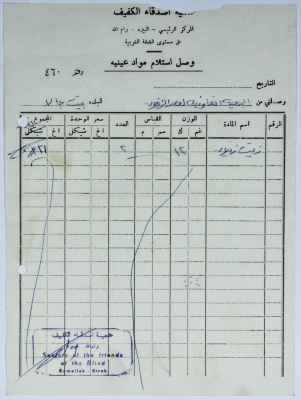 جمعية اصدقاء الكفيف
المركز الرئيسي - البيره - رام الله
على مستوى الضفة الغربية
وصل استلام مواد عينيه
رقم ٤٦٠
التاريخ
وصلني من الجمعية التعاونية لعصر الزيتون البلدة بيت جالا
الرقم اسم المادة الوزن القياس العدد سعر الوحدة المجموع
غم ك سم م اغ شيكل اغ شيكل
زيت زيتون ١٢ ٢
جمعية اصدقاء الكفيف
Society of the friends
of the Blind
Ramallah Bireh